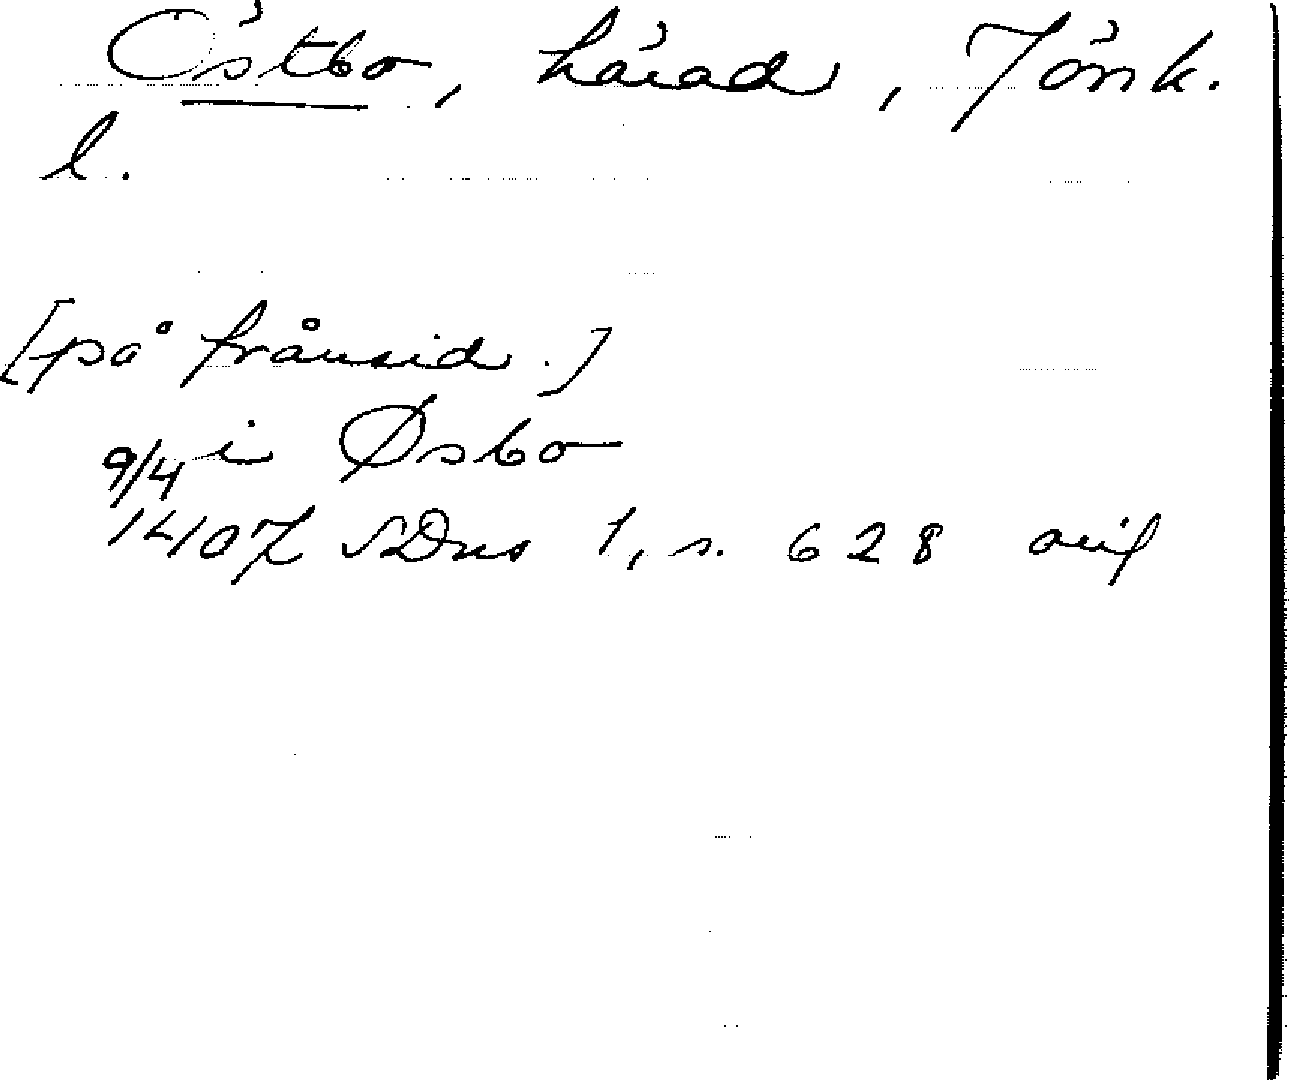 Östbo, härad, Jönk.
l.
[på frånsid.]
9/4 i Øsbo
1407 SDns 1, s. 628 orig